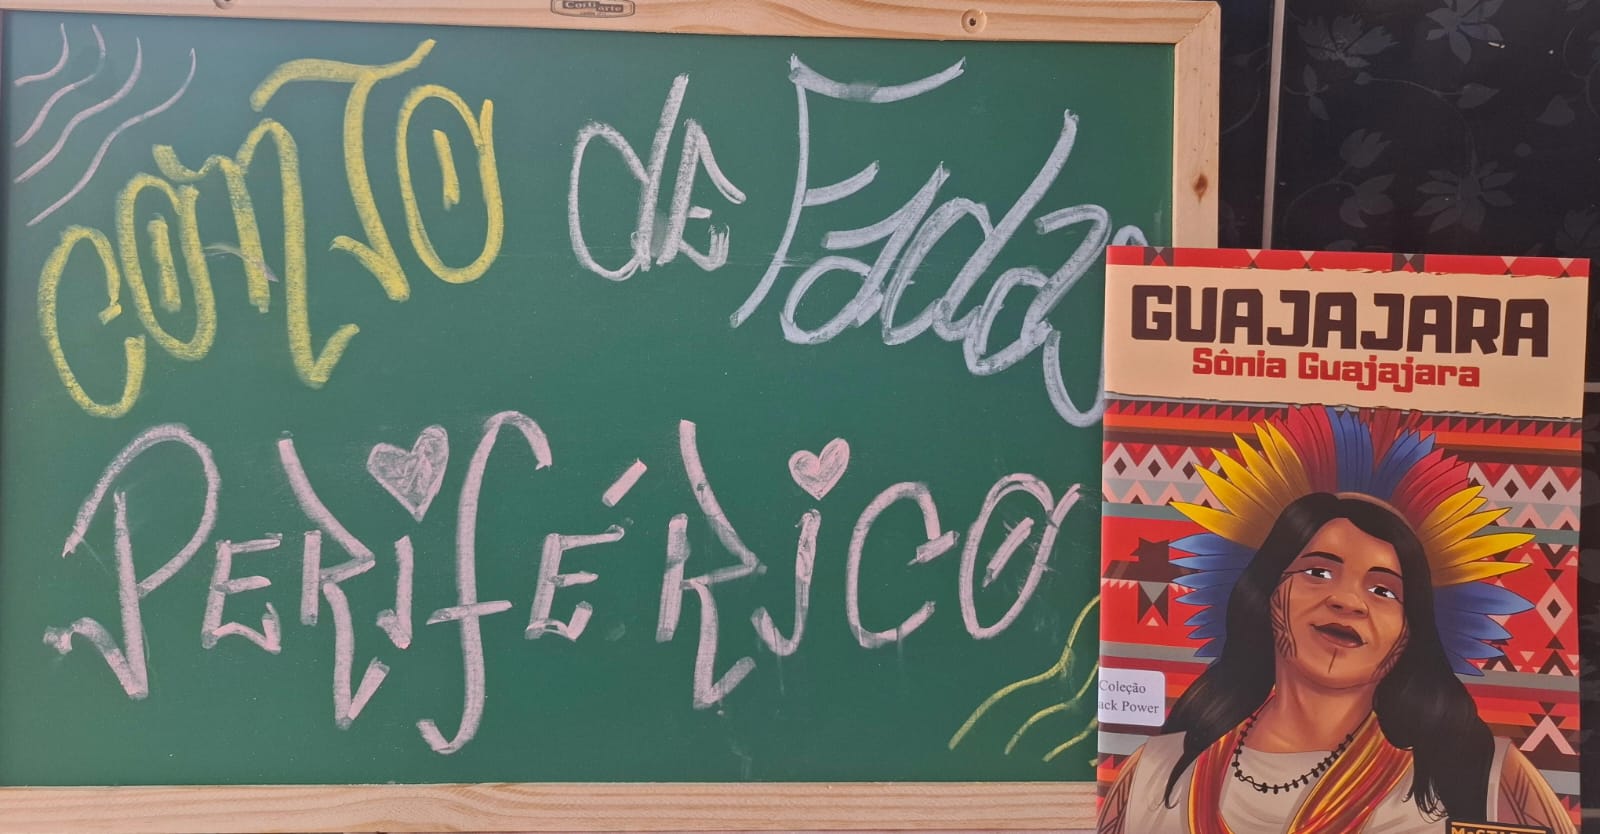 CONTO de Fadas
PERIFÉRICO
GUAJAJARA
Sônia Guajajara
Coleção
ack Power